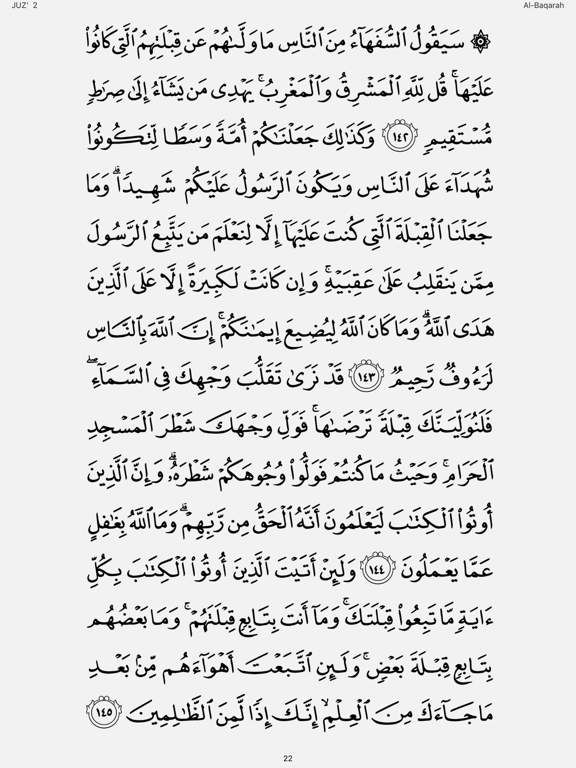 JUZ' 2
Al-Baqarah
۞ سَيَقُولُ ٱلسُّفَهَآءُ مِنَ ٱلنَّاسِ مَا وَلَّىٰهُمْ عَن قِبْلَتِهِمُ ٱلَّتِى كَانُوا۟
عَلَيْهَا ۚ قُل لِّلَّهِ ٱلْمَشْرِقُ وَٱلْمَغْرِبُ ۚ يَهْدِى مَن يَشَآءُ إِلَىٰ صِرَٰطٍ
مُّسْتَقِيمٍ ١٤٢ وَكَذَٰلِكَ جَعَلْنَٰكُمْ أُمَّةً وَسَطًا لِّتَكُونُوا۟
شُهَدَآءَ عَلَى ٱلنَّاسِ وَيَكُونَ ٱلرَّسُولُ عَلَيْكُمْ شَهِيدًا ۗ وَمَا
جَعَلْنَا ٱلْقِبْلَةَ ٱلَّتِى كُنتَ عَلَيْهَآ إِلَّا لِنَعْلَمَ مَن يَتَّبِعُ ٱلرَّسُولَ
مِمَّن يَنقَلِبُ عَلَىٰ عَقِبَيْهِ ۚ وَإِن كَانَتْ لَكَبِيرَةً إِلَّا عَلَى ٱلَّذِينَ
هَدَى ٱللَّهُ ۗ وَمَا كَانَ ٱللَّهُ لِيُضِيعَ إِيمَٰنَكُمْ ۚ إِنَّ ٱللَّهَ بِٱلنَّاسِ
لَرَءُوفٌ رَّحِيمٌ ١٤٣ قَدْ نَرَىٰ تَقَلُّبَ وَجْهِكَ فِى ٱلسَّمَآءِ ۖ
فَلَنُوَلِّيَنَّكَ قِبْلَةً تَرْضَىٰهَا ۚ فَوَلِّ وَجْهَكَ شَطْرَ ٱلْمَسْجِدِ
ٱلْحَرَامِ ۚ وَحَيْثُ مَا كُنتُمْ فَوَلُّوا۟ وُجُوهَكُمْ شَطْرَهُۥ ۗ وَإِنَّ ٱلَّذِينَ
أُوتُوا۟ ٱلْكِتَٰبَ لَيَعْلَمُونَ أَنَّهُ ٱلْحَقُّ مِن رَّبِّهِمْ ۗ وَمَا ٱللَّهُ بِغَٰفِلٍ
عَمَّا يَعْمَلُونَ ١٤٤ وَلَئِنْ أَتَيْتَ ٱلَّذِينَ أُوتُوا۟ ٱلْكِتَٰبَ بِكُلِّ
ءَايَةٍ مَّا تَبِعُوا۟ قِبْلَتَكَ ۚ وَمَآ أَنتَ بِتَابِعٍ قِبْلَتَهُمْ ۚ وَمَا بَعْضُهُم
بِتَابِعٍ قِبْلَةَ بَعْضٍ ۚ وَلَئِنِ ٱتَّبَعْتَ أَهْوَآءَهُم مِّنۢ بَعْدِ
مَا جَآءَكَ مِنَ ٱلْعِلْمِ ۙ إِنَّكَ إِذًا لَّمِنَ ٱلظَّٰلِمِينَ ١٤٥
22